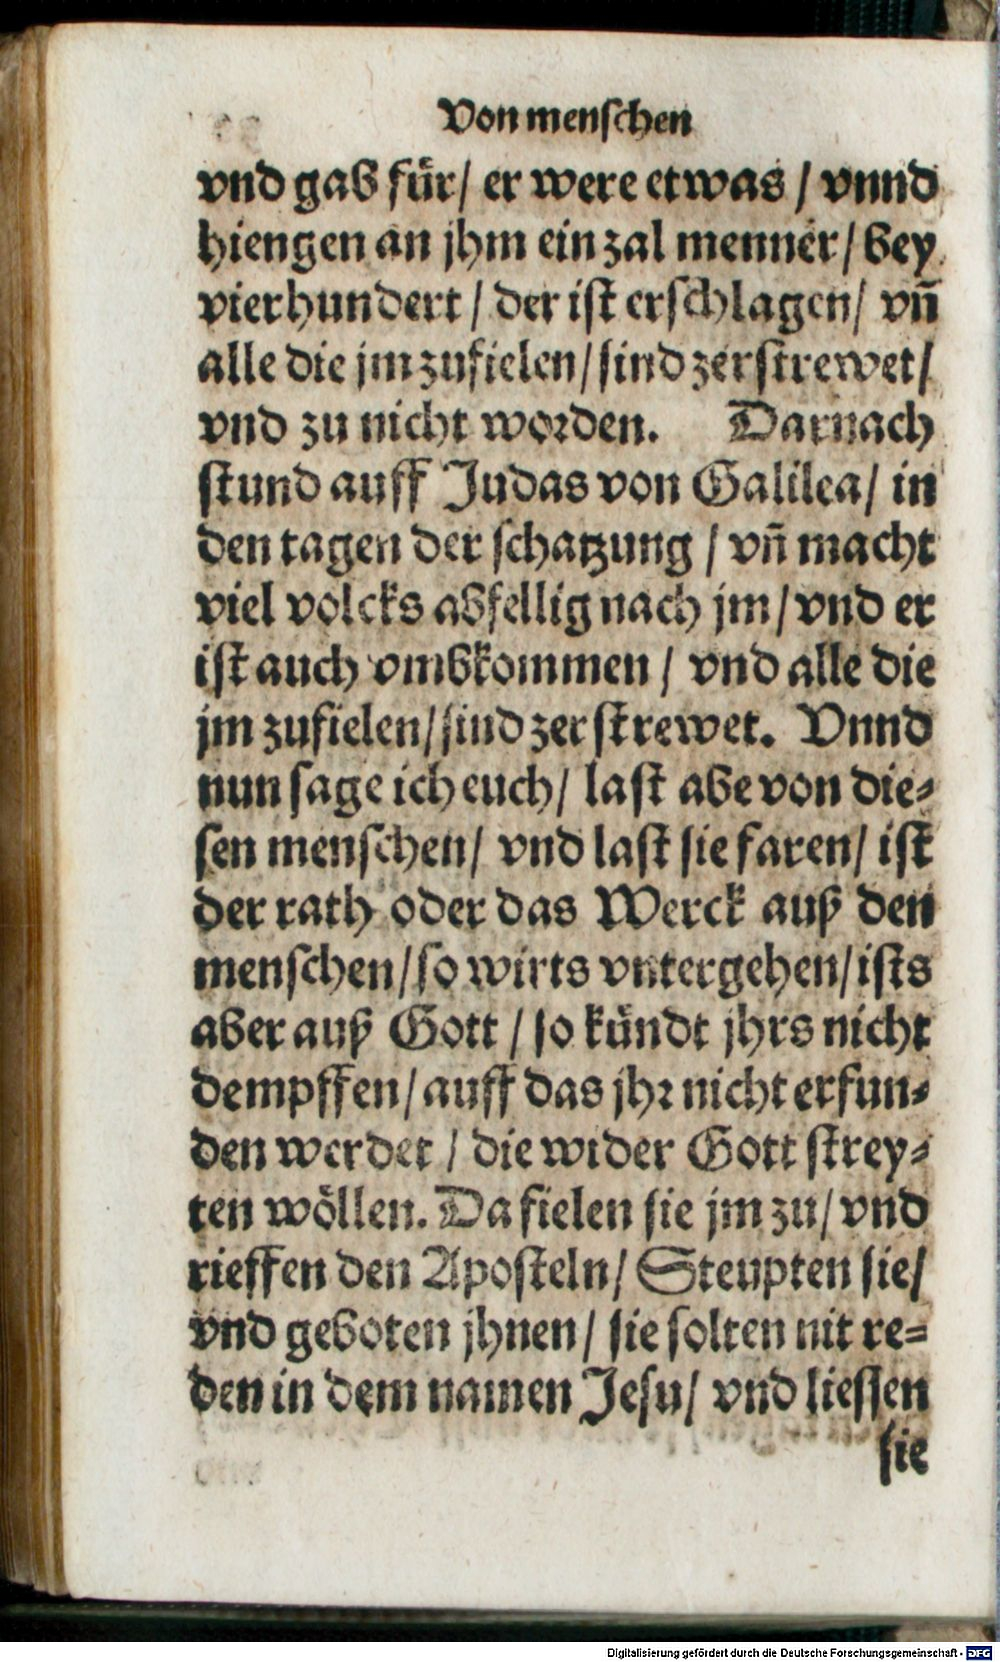 Von menschen
vnd gab für/ er were etwas / vnnd
hiengen an jhm ein zal menner/ bey
vierhundert / der ist erschlagen/ vñ
alle die jm zufielen/ sind zerstrewet/
vnd zu nicht worden. Darnach
stund auff Judas von Galilea/ in
den tagen der schatzung / vñ macht
viel volcks abfellig nach jm/ vnd er
ist auch vmbkommen / vnd alle die
jm zufielen/ sind zerstrewet. Vnnd
nun sage ich euch/ last abe von die-
sen menschen/ vnd last sie faren/ ist
der rath oder das Werck auß den
menschen/ so wirts vntergehen/ ists
aber auß Gott / so kündt jhrs nicht
dempffen/ auff das jhr nicht erfun-
den werdet / die wider Gott strey-
ten wöllen. Da fielen sie jm zu/ vnd
rieffen den Aposteln/ Steupten sie/
vnd geboten jhnen/ sie solten nit re-
den in dem namen Jesu/ vnd liessen
sie
Digitalisierung gefördert durch die Deutsche Forschungsgemeinschaft - DFG